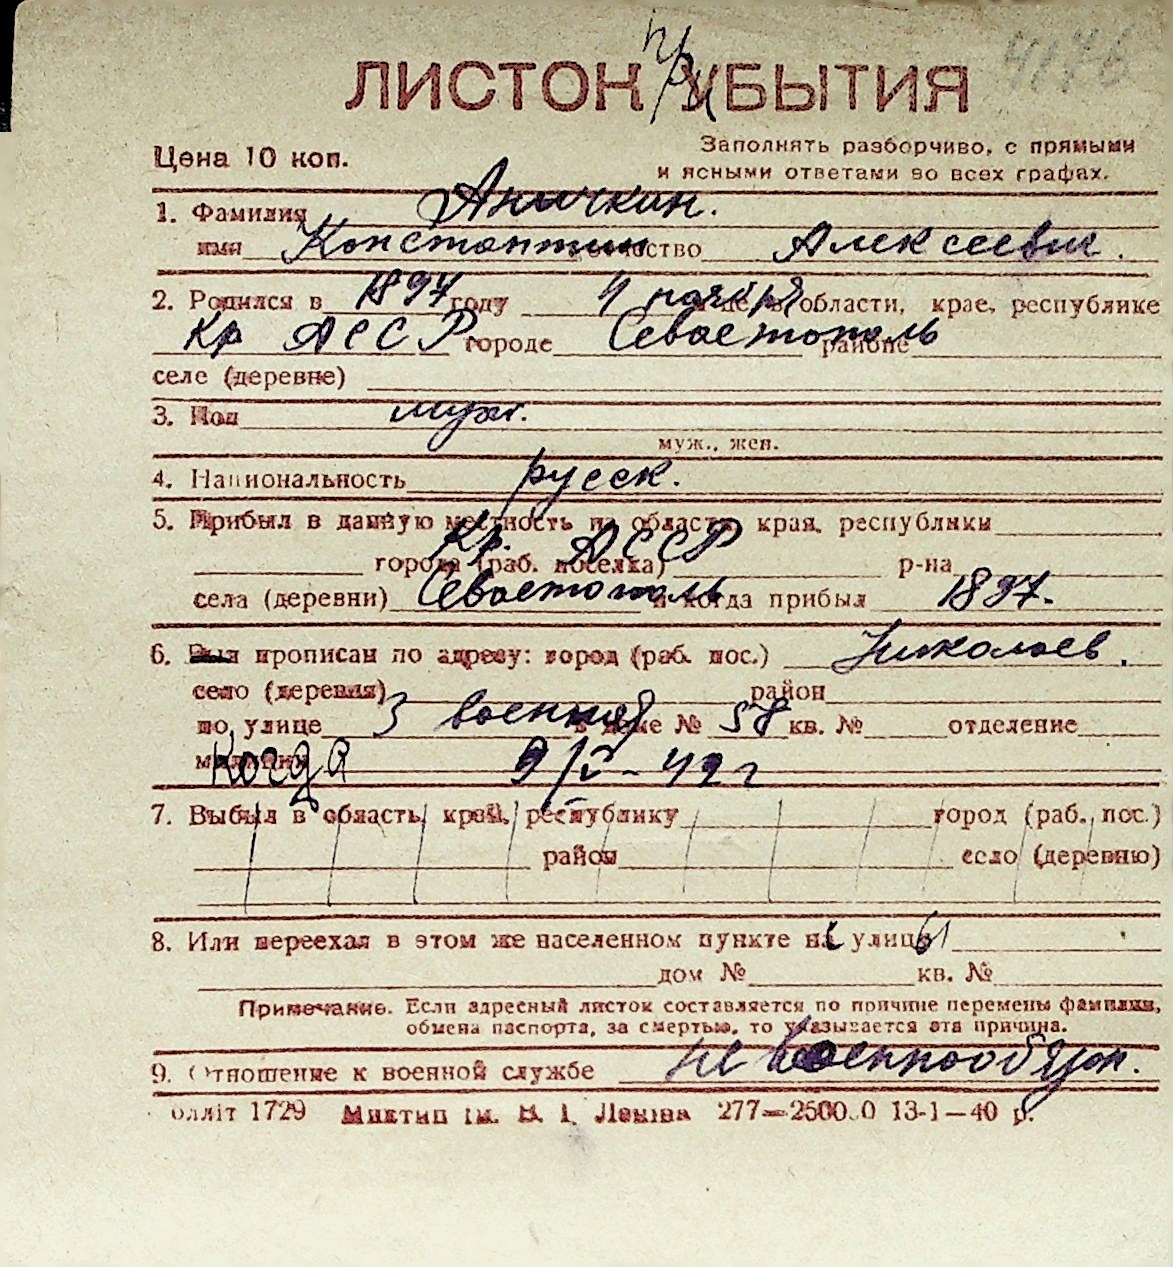 4176
ЛИСТОК при УБЫТИЯ
Цена 10 коп.
Заполнять разборчиво, с прямыми
и ясными ответами во всех графах.
1. Фамилия Аничкин.
имя Константин отчество Алексеевич.
2. Родился в 1897 году 4 ноября области, крае, республике
Кр АССР городе Севастополь районе
селе (деревне)
3. Пол муж.
муж., жен.
4. Национальность русск.
5. Прибыл в данную местность из области, края, республики
Кр. АССР
города (раб. поселка) р-на
села (деревни) Севастополь и когда прибыл 1897.
6. Был прописан по адресу: город (раб. пос.) Николаев.
село (деревня) район
по улице 3 военная в доме № 58 кв. № отделение
милиции Когда 9/V-42 г
7. Выбыл в область, край, республику город (раб. пос.)
район село (деревню)
8. Или переехал в этом же населенном пункте на улицу
дом № кв. №
Примечание. Если адресный листок составляется по причине перемены фамилии,
обмена паспорта, за смертью, то указывается эта причина.
9. Отношение к военной службе не военнообязан.
1729 им. В. І. Леніна 13-1—40 р.